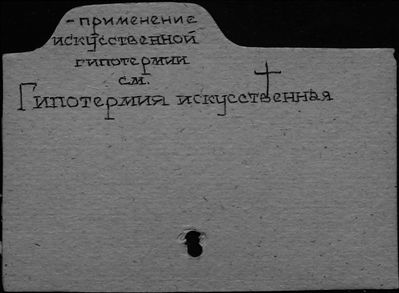 - применение
искусственной
гипотермии
см.
Гипотермия искусственная